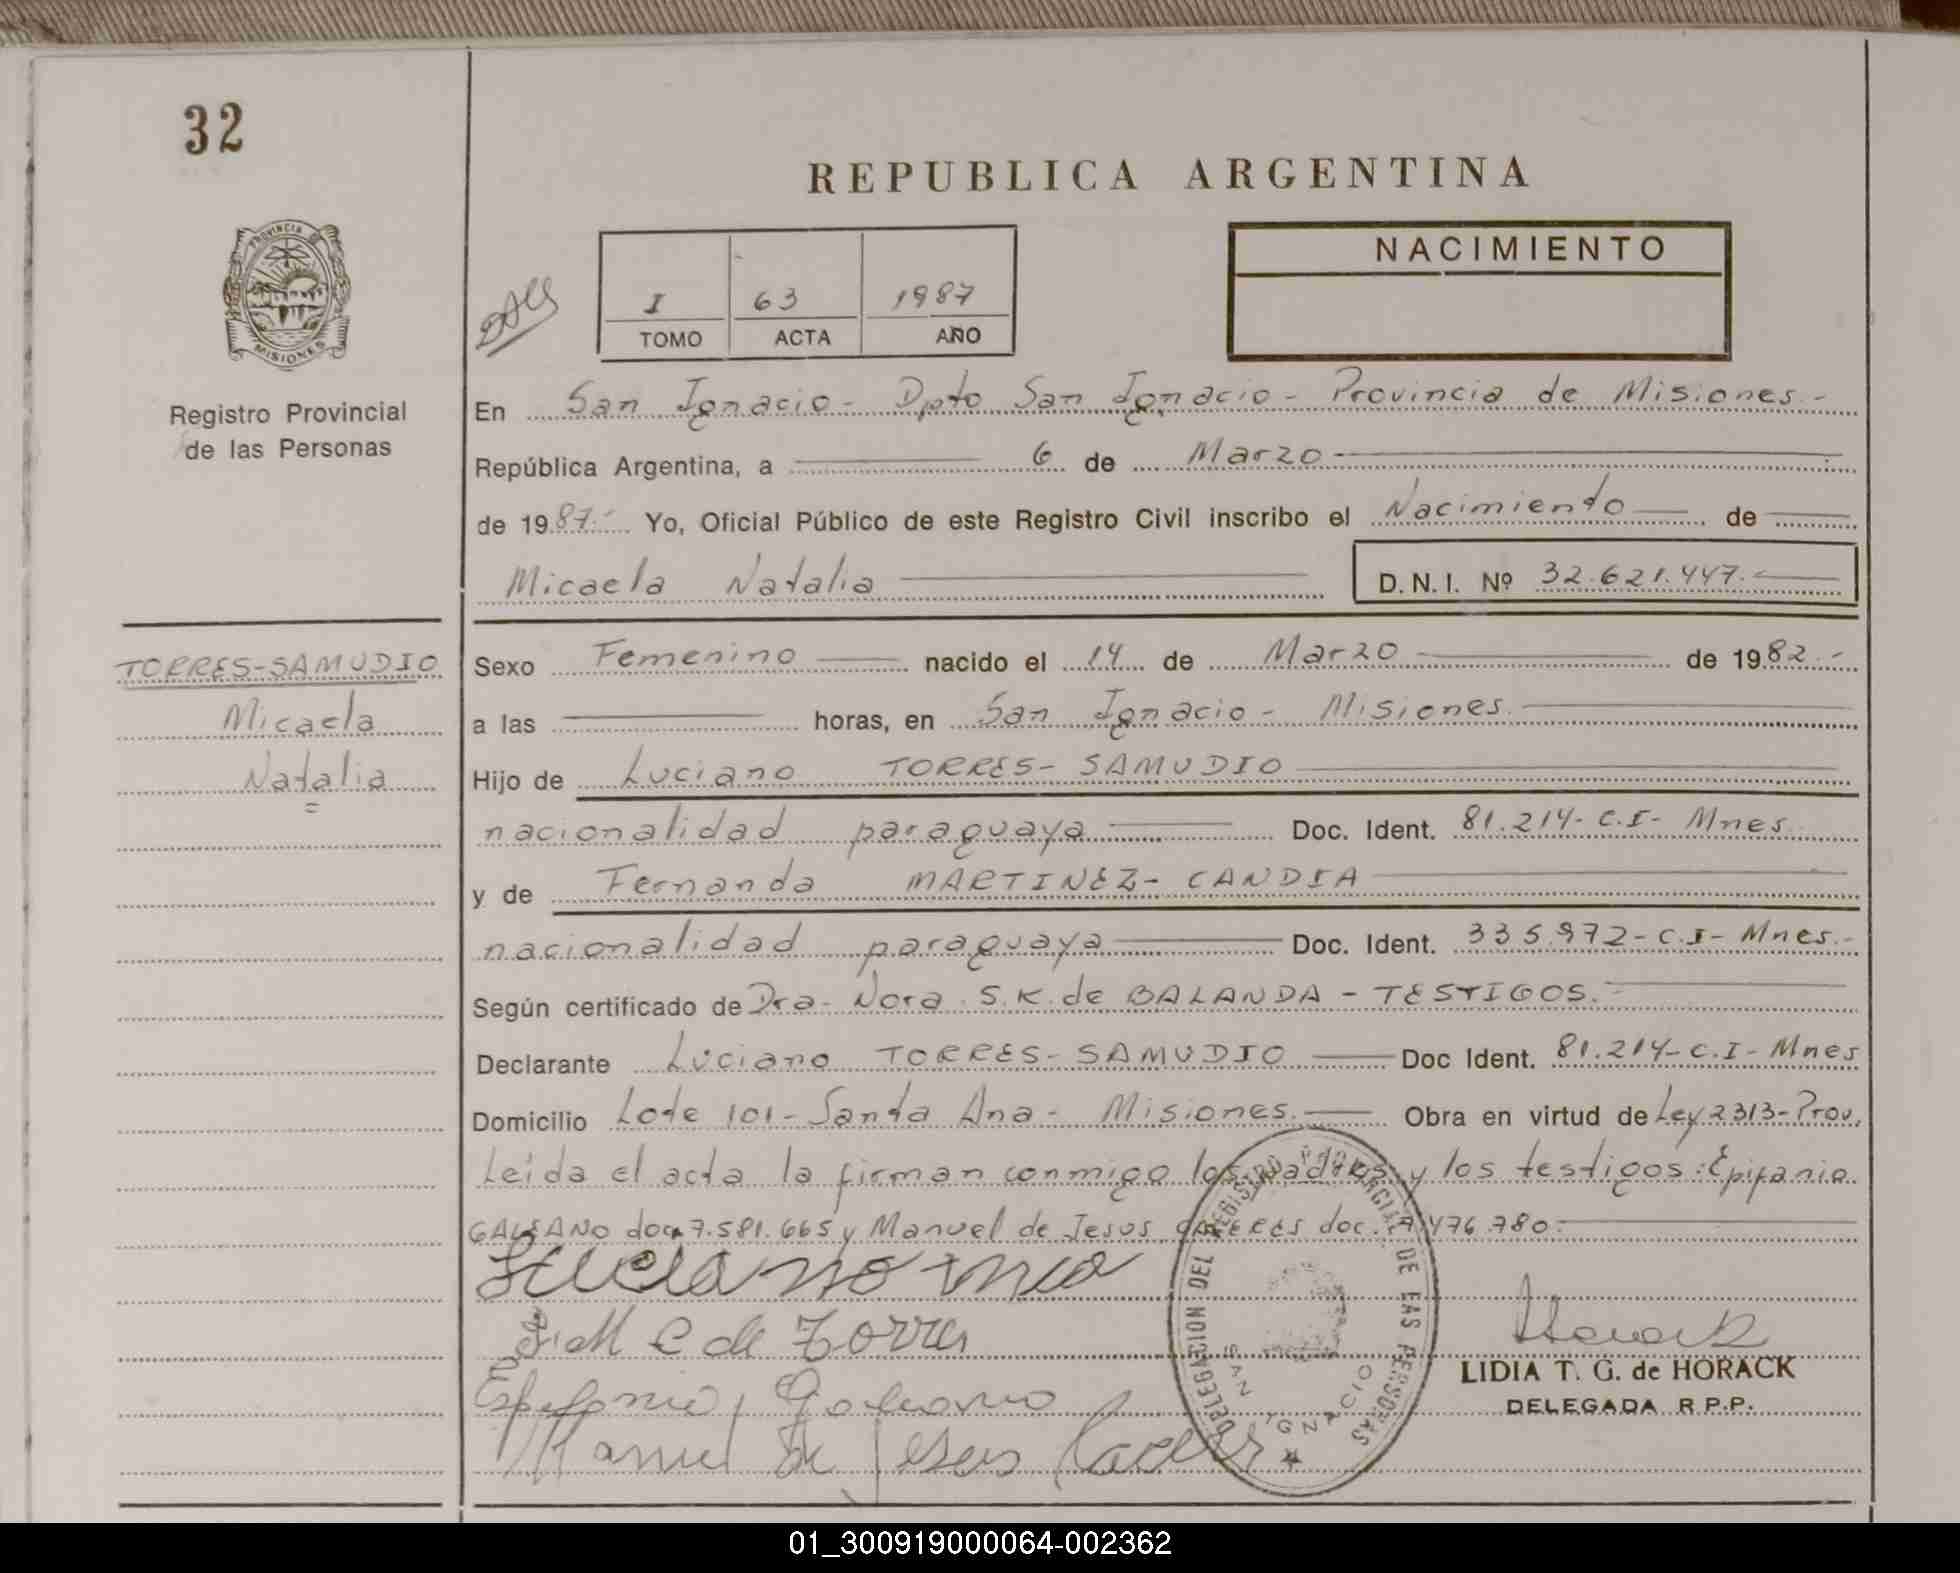 32
REPUBLICA ARGENTINA
PROVINCIA DE
MISIONES
Registro Provincial
de las Personas
I 63 1987
TOMO ACTA AÑO
NACIMIENTO
En San Ignacio - Dpto San Ignacio - Provincia de Misiones.-
República Argentina, a 6 de Marzo
de 1987.- Yo, Oficial Público de este Registro Civil inscribo el Nacimiento de
Micaela Natalia D.N.I. Nº 32.621.447.-
TORRES-SAMUDIO
Micaela
Natalia
Sexo Femenino nacido el 14 de Marzo de 1982.-
a las horas, en San Ignacio - Misiones.
Hijo de Luciano TORRES-SAMUDIO
nacionalidad paraguaya Doc. Ident. 81.214-C.I-Mnes.
y de Fernanda MARTINEZ-CANDIA
nacionalidad paraguaya Doc. Ident. 335.972-C.I-Mnes.-
Según certificado de Dra. Nora S.K. de BALANDA - TESTIGOS.-
Declarante Luciano TORRES-SAMUDIO Doc Ident. 81.214-C.I-Mnes
Domicilio Lote 101-Santa Ana - Misiones. Obra en virtud de Ley 2313-Prov.
Leida el acta la firman conmigo los padres y los testigos: Epifanio
GALEANO doc. 7.581.665 y Manuel de Jesus CACERES doc. 7.476.780.-
Luciano
F. M C de Torres
Epifanio Galeano
Manuel de Jesus Caceres
DELEGACION DEL REGISTRO PROVINCIAL DE LAS PERSONAS
SAN IGNACIO
Horack
LIDIA T. G. de HORACK
DELEGADA R.P.P.
01_300919000064-002362